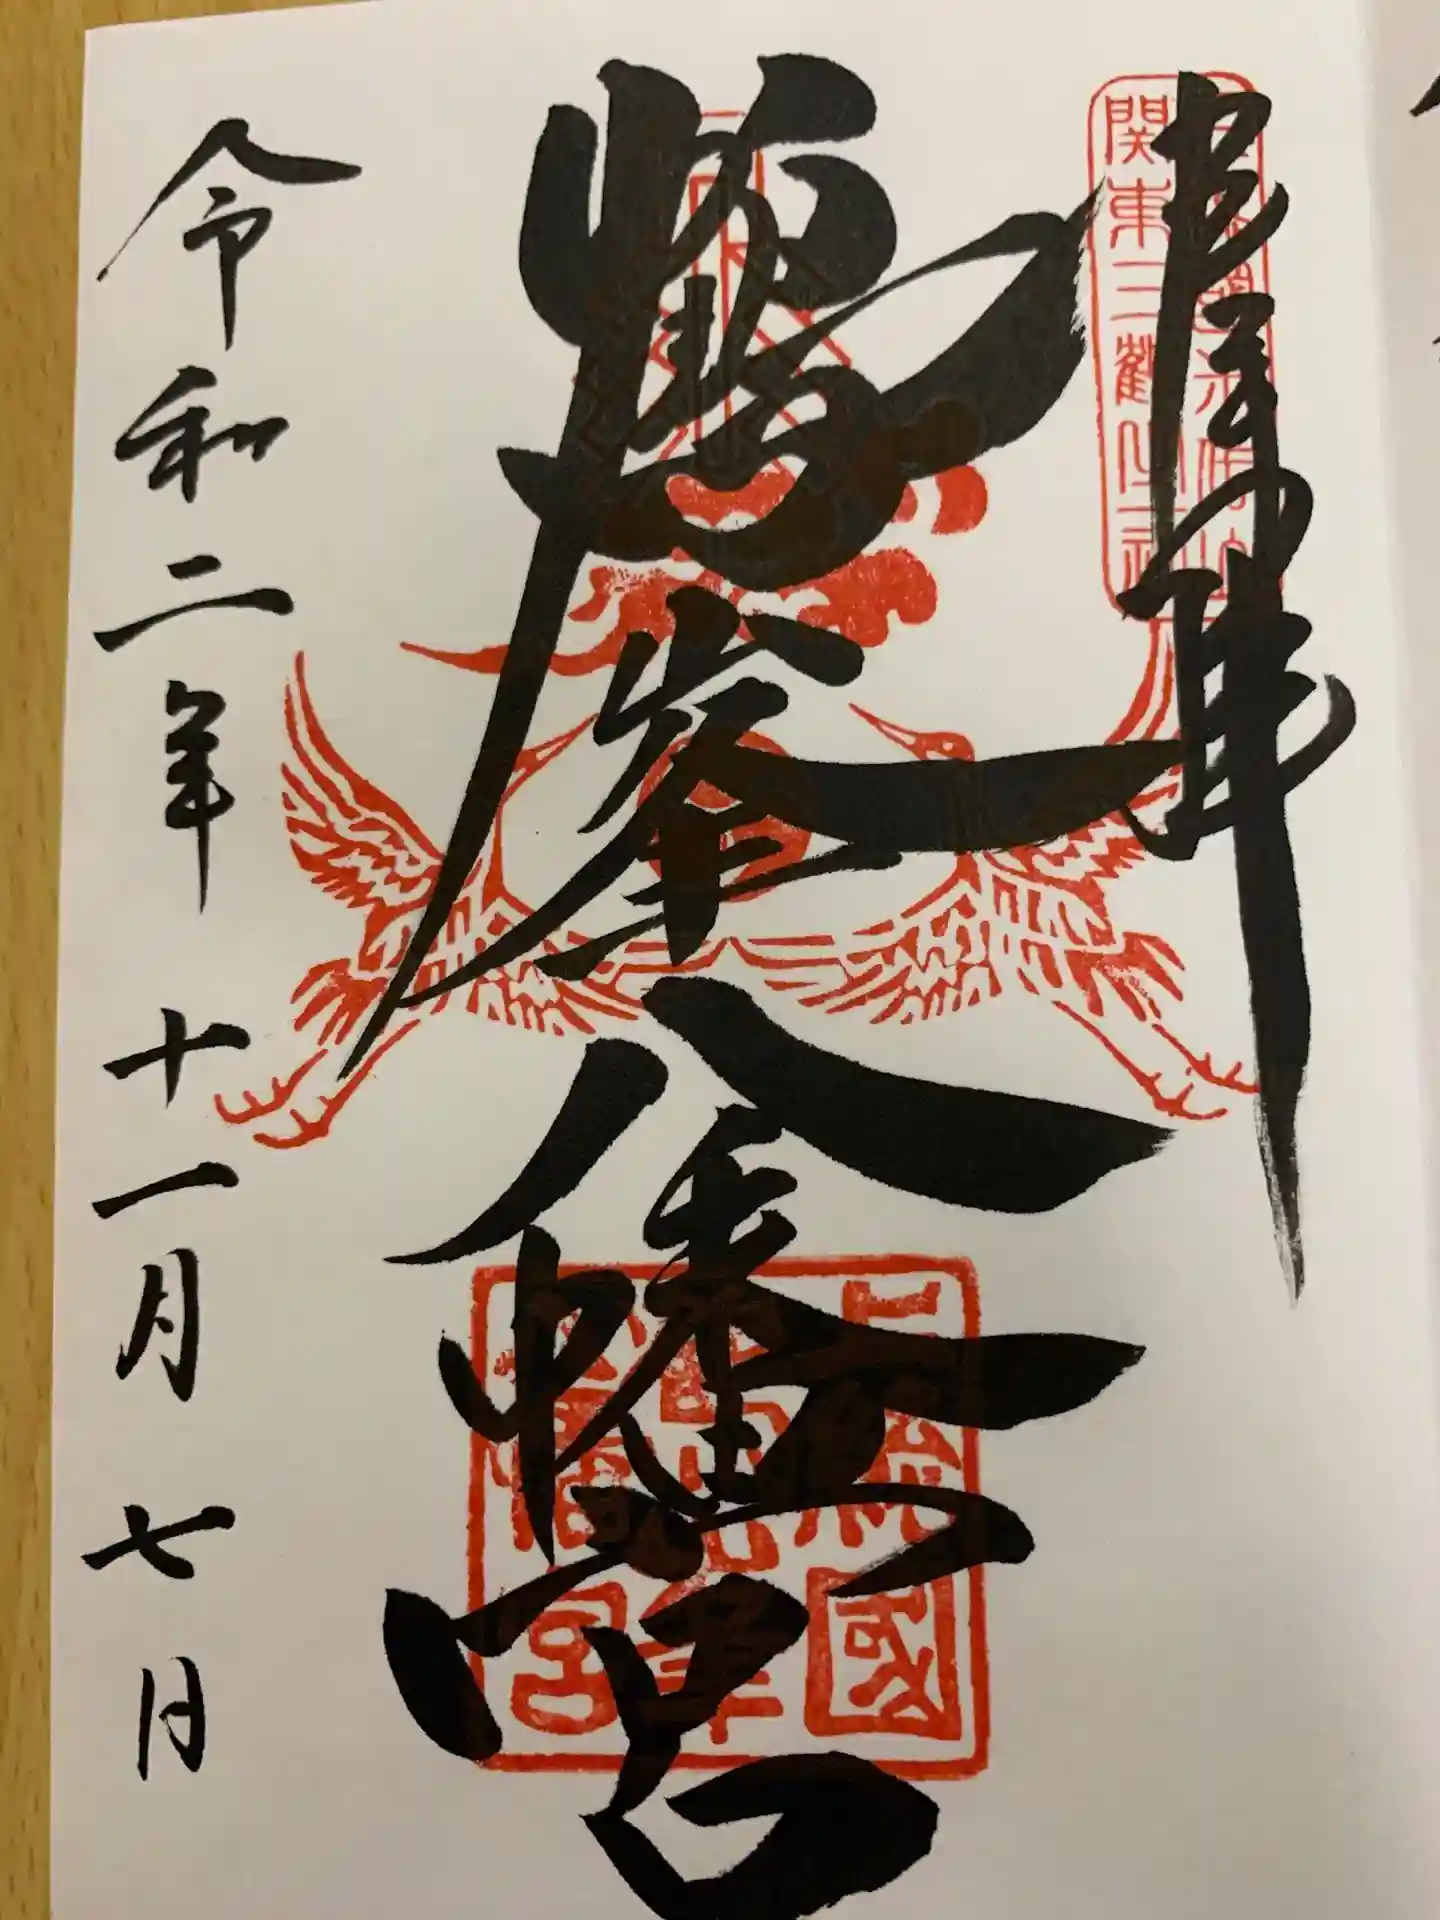 奉拝
関東三鶴之一社
鶴峯八幡宮
上総國
八幡宮
令和二年 十一月 七日